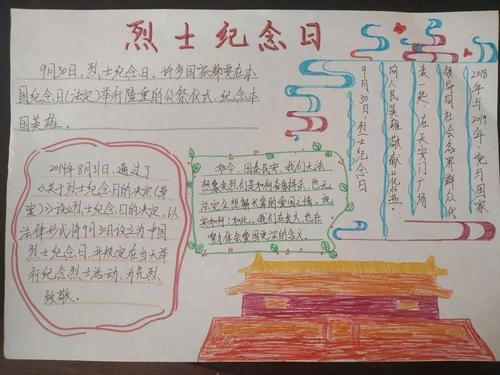 烈士纪念日
9月30日,烈士纪念日,许多国家都要在本
国纪念日(法定)举行隆重的公祭仪式,纪念本
国英雄。
2014年8月31日,通过了
《关于烈士纪念日的决定(草
案)》设立烈士纪念日的决定,以
法律形式将9月30日设立为中国
烈士纪念日,并规定在当天举
行纪念烈士活动,为先烈
致敬。
如今,国泰民安,我们无法
想象先烈们是如何奋勇拼杀,也无
法完全想解
如何,如此,我们在长大也在
努力体会爱国更深的含义。
2018年与2019年,党与国家
领导同社会各界群众代
表一起,在天安门广场
向人民英雄敬献花篮。
9月30日,烈士纪念日